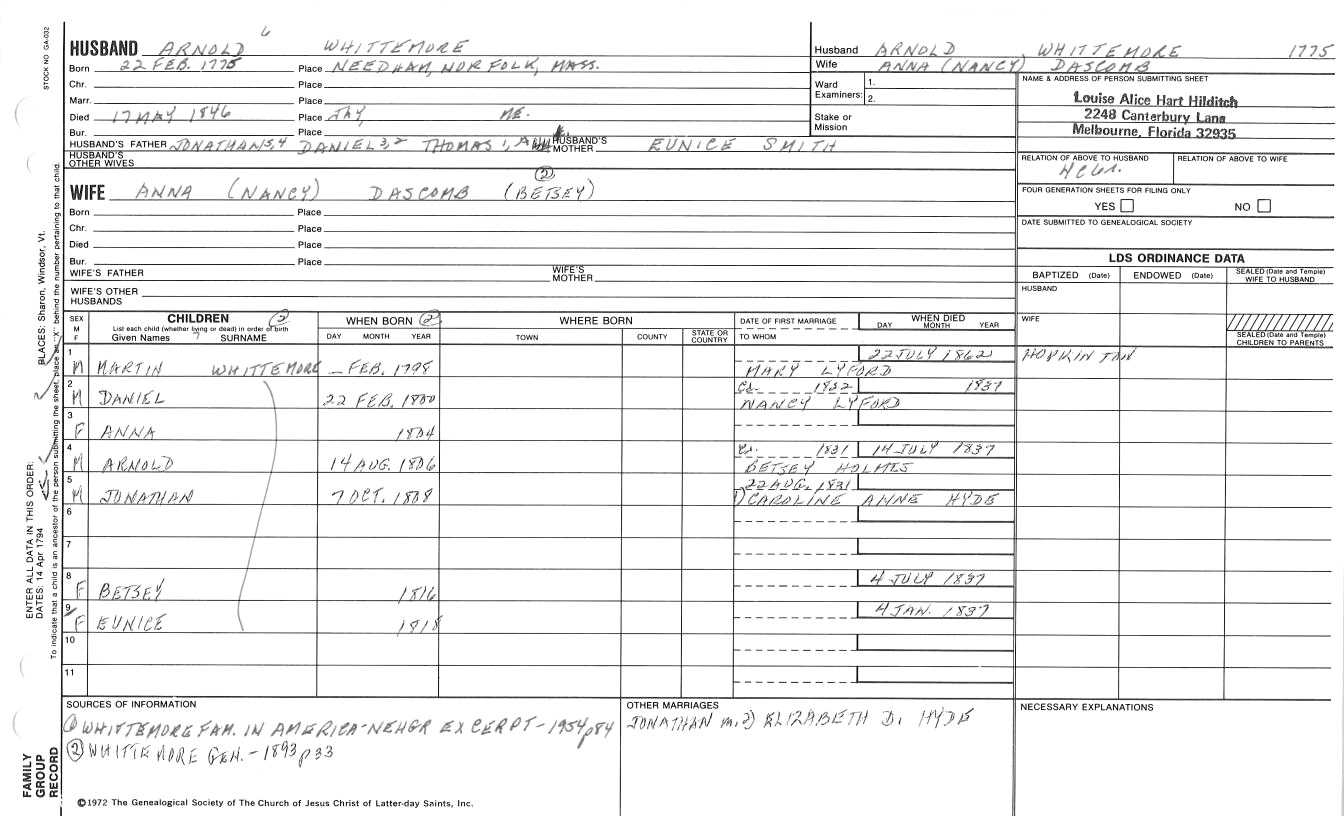 STOCK NO. GA-032
HUSBAND ARNOLD 6 WHITTEMORE
Born 22 FEB. 1775 Place NEEDHAM, NORFOLK, MASS.
Chr. Place
Marr. Place
Died 17 MAY 1846 Place JAY, ME.
Bur. Place
HUSBAND'S FATHER JONATHAN 5,4 DANIEL 3,2 THOMAS 1, HUSBAND'S MOTHER EUNICE SMITH
HUSBAND'S OTHER WIVES
WIFE ANNA (NANCY) DASCOMB (BETSEY) (2)
Born Place
Chr. Place
Died Place
Bur. Place
WIFE'S FATHER WIFE'S MOTHER
WIFE'S OTHER HUSBANDS
Husband ARNOLD WHITTEMORE 1775
Wife ANNA (NANCY) DASCOMB
Ward Examiners: 1. 2.
Stake or Mission
NAME & ADDRESS OF PERSON SUBMITTING SHEET
Louise Alice Hart Hilditch
2248 Canterbury Lane
Melbourne, Florida 32935
RELATION OF ABOVE TO HUSBAND RELATION OF ABOVE TO WIFE
FOUR GENERATION SHEETS FOR FILING ONLY
YES NO
DATE SUBMITTED TO GENEALOGICAL SOCIETY
LDS ORDINANCE DATA
BAPTIZED (Date) ENDOWED (Date) SEALED (Date and Temple) WIFE TO HUSBAND
HUSBAND
WIFE
SEALED (Date and Temple) CHILDREN TO PARENTS
SEX M F CHILDREN (2) WHEN BORN (2) WHERE BORN DATE OF FIRST MARRIAGE WHEN DIED
List each child (whether living or dead) in order of birth
Given Names 7 SURNAME DAY MONTH YEAR TOWN COUNTY STATE OR COUNTRY TO WHOM DAY MONTH YEAR
1 22 JULY 1862 HOPKINTON
M MARTIN WHITTEMORE – FEB. 1798 MARY LYFORD
2 1832 1837
M DANIEL 22 FEB. 1800 NANCY LYFORD
3
F ANNA 1804
4 1831 14 JULY 1837
M ARNOLD 14 AUG. 1806 BETSEY HOLMES
5 22 AUG. 1831
M JONATHAN 7 OCT. 1808 1) CAROLINE ANNE HYDE
6
7
8 4 JULY 1837
F BETSEY 1816
9 4 JAN. 1837
F EUNICE 1818
10
11
SOURCES OF INFORMATION
(1) WHITTEMORE FAM. IN AMERICA-NEHGR EXCERPT-1954 p84
(2) WHITTEMORE GEN. - 1893 p33
OTHER MARRIAGES
JONATHAN m. 2) ELIZABETH D. HYDE
NECESSARY EXPLANATIONS
©1972 The Genealogical Society of The Church of Jesus Christ of Latter-day Saints, Inc.
FAMILY GROUP RECORD
ENTER ALL DATA IN THIS ORDER:
DATES: 14 Apr 1794 PLACES: Sharon, Windsor, Vt.
To indicate that a child is an ancestor of the person submitting the sheet, place an "X" behind the number pertaining to that child.